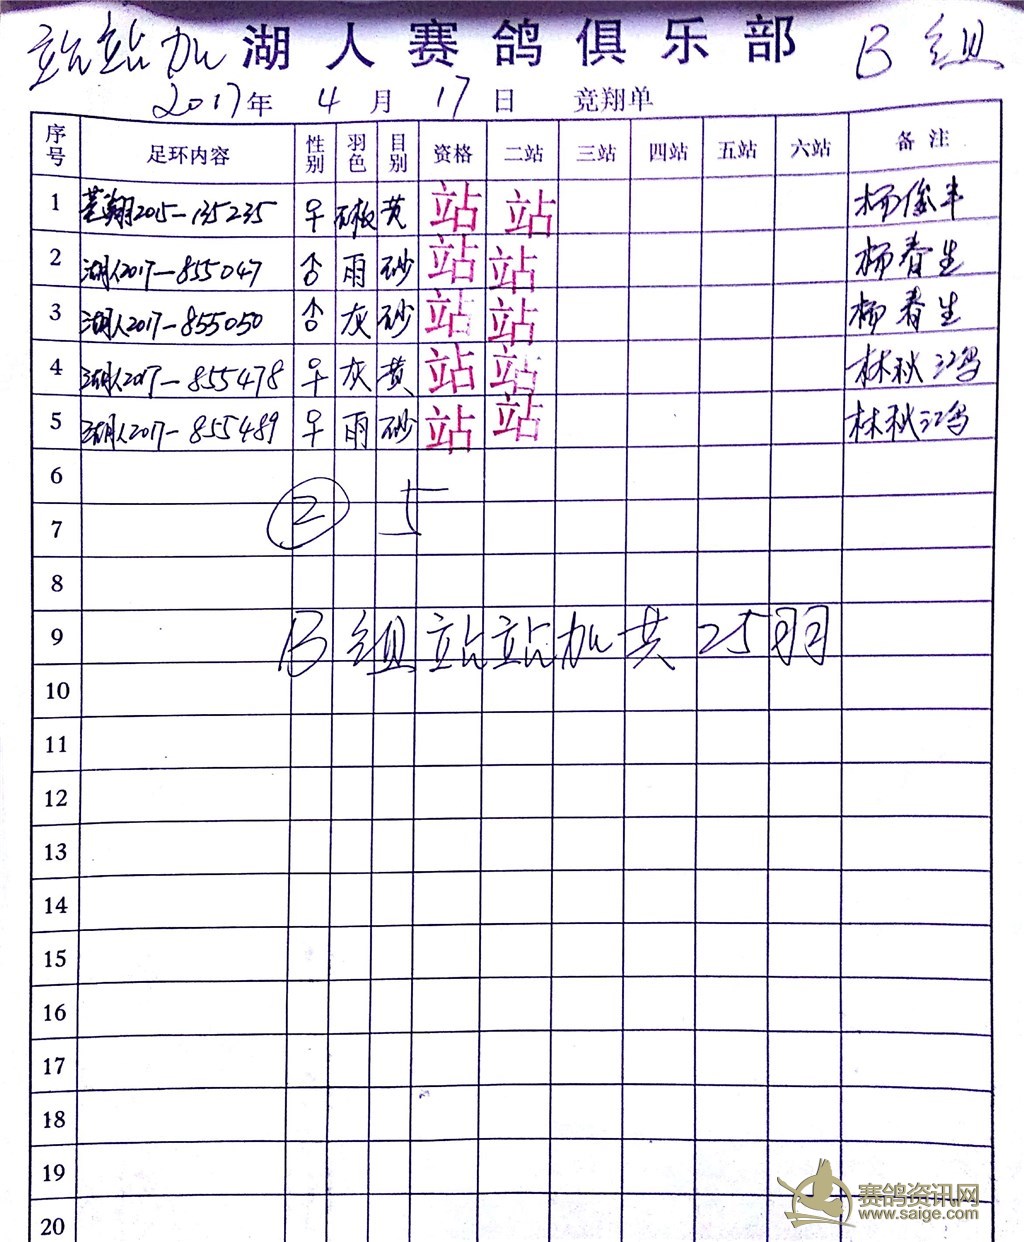 站站加 湖人赛鸽俱乐部 B组
2017年 4月 17日 竞翔单
序号 足环内容 性别 羽色 目别 资格 二站 三站 四站 五站 六站 备注
1 翔2015-135235 早 石板 黄 站 站 杨俊丰
2 湖人2017-855047 雨 砂 站 站 杨春生
3 湖人2017-855050 灰 砂 站 站 杨春生
4 湖人2017-855478 早 灰 黄 站 站 林秋鸿
5 湖人2017-855489 早 雨 砂 站 站 林秋鸿
6
② 5
7
8
9 B组站站加共25羽
10
11
12
13
14
15
16
17
18
19
20
赛鸽资讯网
www.saige.com